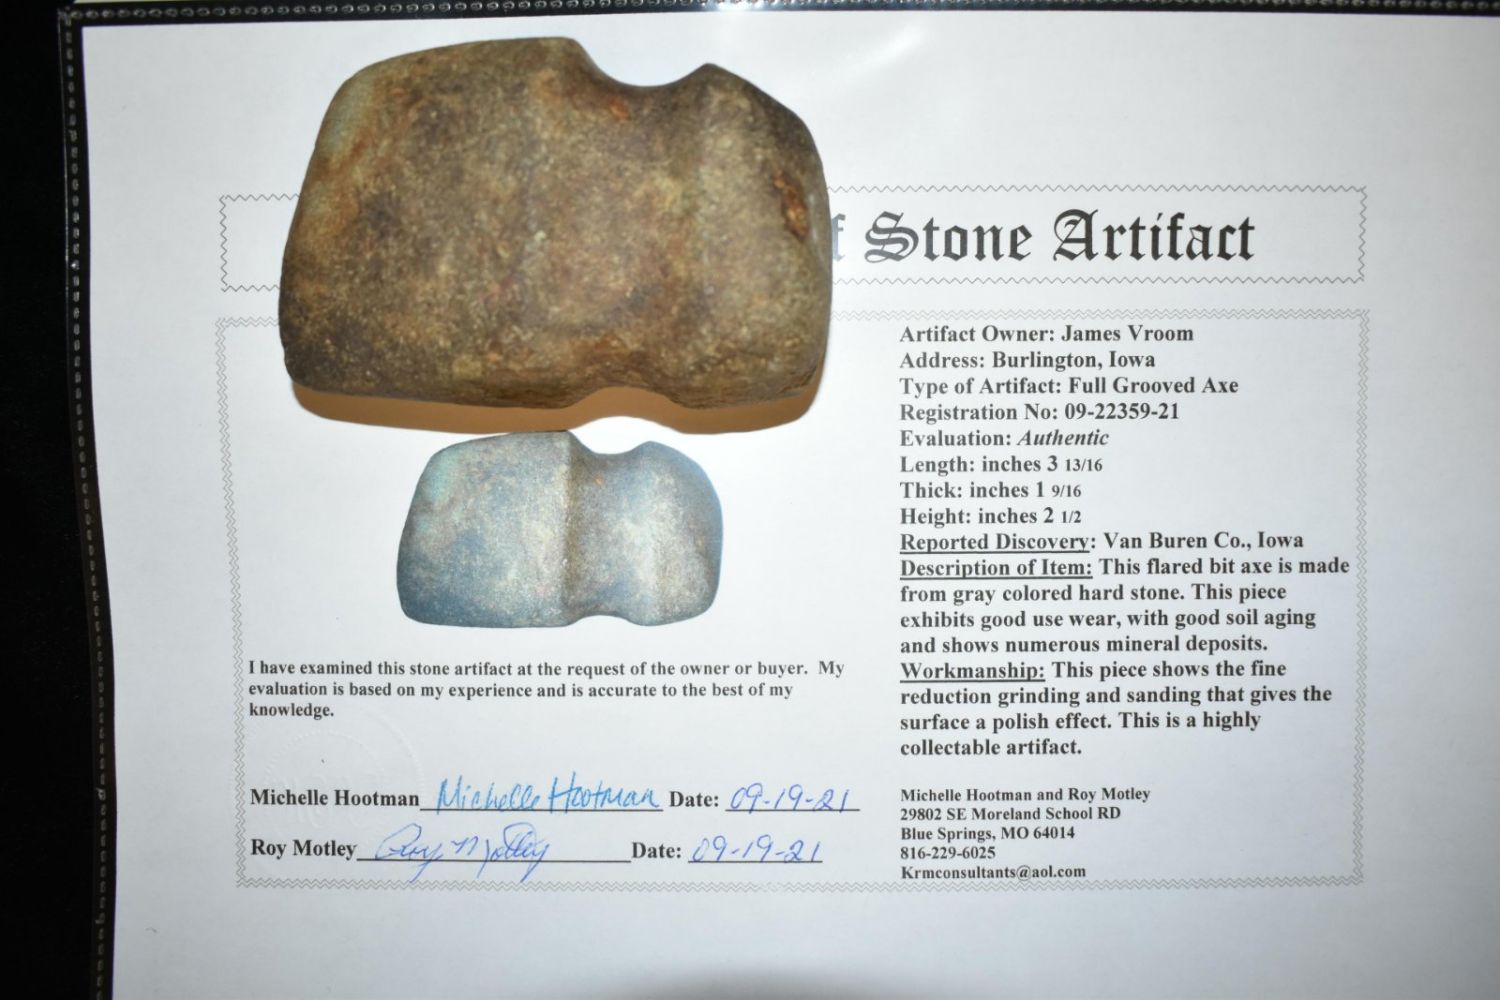 f Stone Artifact
Artifact Owner: James Vroom
Address: Burlington, Iowa
Type of Artifact: Full Grooved Axe
Registration No: 09-22359-21
Evaluation: Authentic
Length: inches 3 13/16
Thick: inches 1 9/16
Height: inches 2 1/2
Reported Discovery: Van Buren Co., Iowa
Description of Item: This flared bit axe is made
from gray colored hard stone. This piece
exhibits good use wear, with good soil aging
and shows numerous mineral deposits.
Workmanship: This piece shows the fine
reduction grinding and sanding that gives the
surface a polish effect. This is a highly
collectable artifact.
I have examined this stone artifact at the request of the owner or buyer. My
evaluation is based on my experience and is accurate to the best of my
knowledge.
Michelle Hootman Michelle Hootman Date: 09-19-21
Roy Motley Roy Motley Date: 09-19-21
Michelle Hootman and Roy Motley
29802 SE Moreland School RD
Blue Springs, MO 64014
816-229-6025
Krmconsultants@aol.com